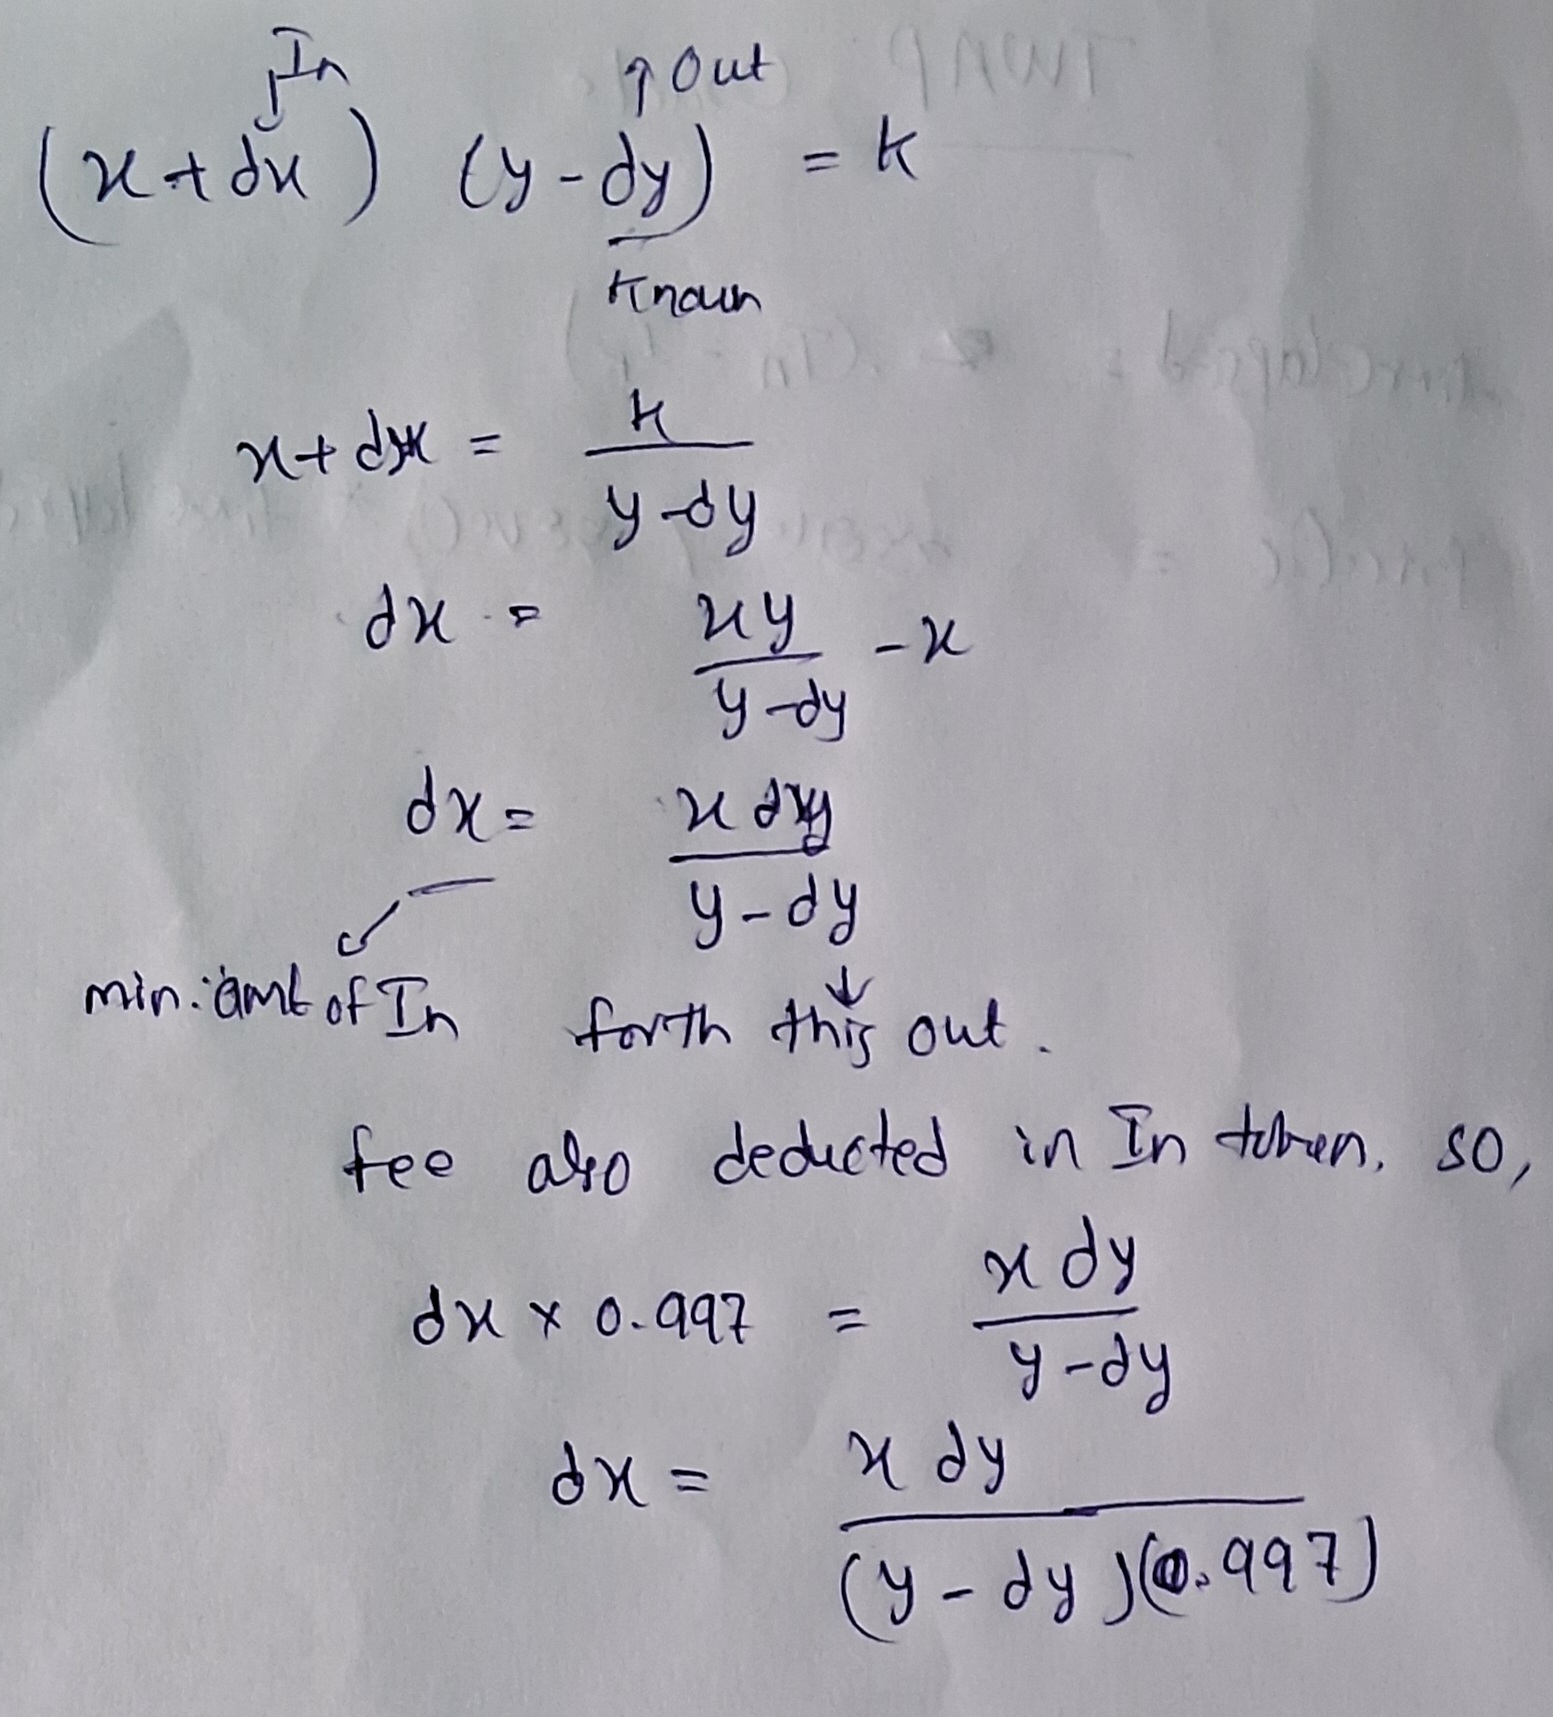 In ↑ Out
(x + dx) (y - dy) = k
Known
x + dx = k / (y - dy)
dx = xy / (y - dy) - x
dx = x dy / (y - dy)
min. amt of In forth this out.
fee also deducted in In token. so,
dx × 0.997 = x dy / (y - dy)
dx = x dy / (y - dy)(0.997)